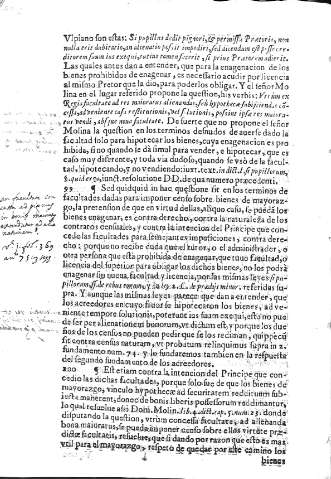 Vlpiano son estas: Si pupillus dedit pignori, & permissu Pratoris, non
nulla erit dubitatio, an alienatio possit impediri, sed dicendum est posse cre-
ditorem suum ius exequi, tutius tamen fecerit, si prius Pratorem adierit.
Las quales antes dan a entender, que para la enagenacion de los
bienes prohibidos de enagenar, es necesario acudir por licencia
al mismo Pretor que la dio, para poderlos obligar. Y el señor Mo
lina en el lugar referido propone la question, his verbis: Verùm ex
Regis facultate ad res maioratus alienandas, seu hypothecæ subijciendas, co
cessa, adveniente casu restitutionis, vel solutionis, possint ipsæ res maiora-
tus vendi, absque nova facultate. De suerte que no propone el señor
Molina la question en los terminos desnudos de averse dado la
facultad solo para hipotecar los bienes, cuya enagenacion es pro
hibida, si no quando se dà simul para vender, e hipotecar, que es
caso muy diferente, y toda via dudoso, quando se vsò de la facul-
tad, hipotecando, y no vendiendo: iuxt. text. in dict. l. si pupillorum,
§. qui dergo, iunct. resolutione DD. de qua numero præcedenti.
99 ¶ Sed quidquid in hac quæstione sit en los terminos de
facultades dadas para imponer censo sobre bienes de mayoraz-
go, la pretension de que en virtud dellas, aliquo casu, se puedã los
bienes enagenar, es contra derecho, contra la naturaleza de los
contratos censuales, y contra la intencion del Principe que con-
cede las facultades para semejantes imposiciones, contra dere-
cho; porque no recibe duda que el tutor, o el administrador, o
otra persona que està prohibida de enagenar, que tuuo facultad, o
licencia del superior para obligar los dichos bienes, no los podrà
enagenar sin nueua facultad, y licencia, por las mismas leyes si pu-
pillorum, ff. de rebus eorum, & leg. 1. C. de prædijs minor. referidas su-
pra. Y aunque las mismas leyes parece que dan a entender, que
los acreedores en cuyo fauor se hipotecaron los bienes, ad ve-
niente tempore solutionis, potetant ius suum exequi, esto no pue-
de ser per alienationem bonorum, vt dictum est, y porque los due
ños de los censos no pueden pedir que se los rediman, quippe cũ
sit contra census naturam, vt probatum relinquimus supra in 2.
fundamento num. 74. y lo fundaremos tambien en la respuesta
del segundo fundamento de los acreedores.
100 ¶ Est etiam contra la intencion del Principe que con-
cediò las dichas facultades, porque solo fue de que los bienes de
mayorazgo, vinculo hypothecæ ad securitatem redditnum sub-
iecta manerent, donec de bonis liberis possessorum reddimantur,
lo qual resuelue assi Dom. Molin. lib. 4. dict. cap. 7. num. 23. donde
disputando la question, vtrùm concessa facultate, ad alienanda
bona maioratus, se puedan imponer censo sobre ellos virtute præ-
dictæ facultatis, resuelue, que si dando por razon que esto es mas
vtil para el mayorazgo, respeto de quedar por este camino los
bienes